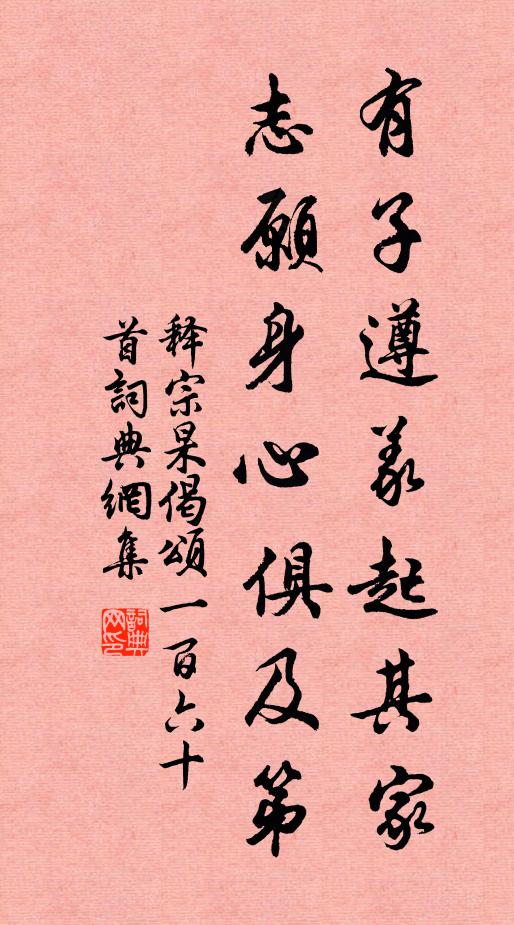 有子遵义起其家
志願身心俱及第
释宗杲偈頌一百六十
首詞典網集
詞典網印